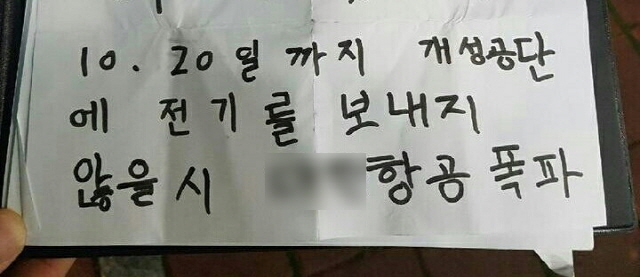 10. 20일 까지 개성공단
에 전기를 보내지
않을시 항공폭파